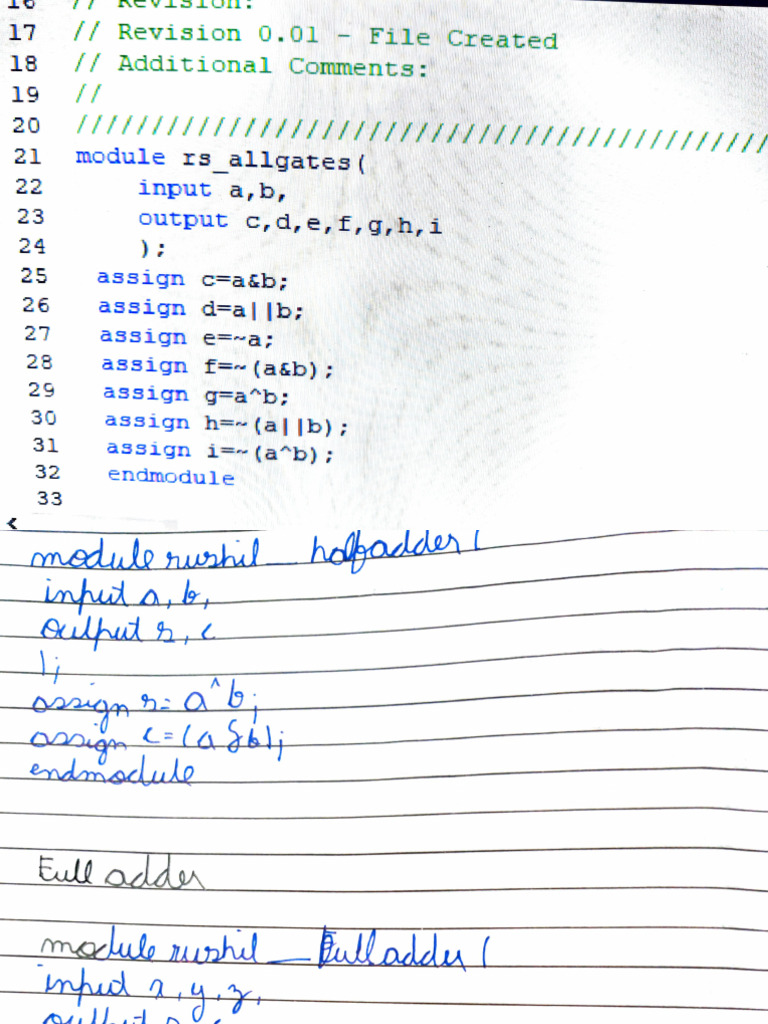 16 // Revision:
17 // Revision 0.01 - File Created
18 // Additional Comments:
19 //
20 //////////////////////////////////////////////
21 module rs_allgates(
22 input a,b,
23 output c,d,e,f,g,h,i
24 );
25 assign c=a&b;
26 assign d=a||b;
27 assign e=~a;
28 assign f=~(a&b);
29 assign g=a^b;
30 assign h=~(a||b);
31 assign i=~(a^b);
32 endmodule
33
module rushil_halfadder(
input a, b,
output s, c
);
assign s= a^b;
assign c=(a&b);
endmodule
Full adder
module rushil_Fulladder (
input x, y, z,
output s, c